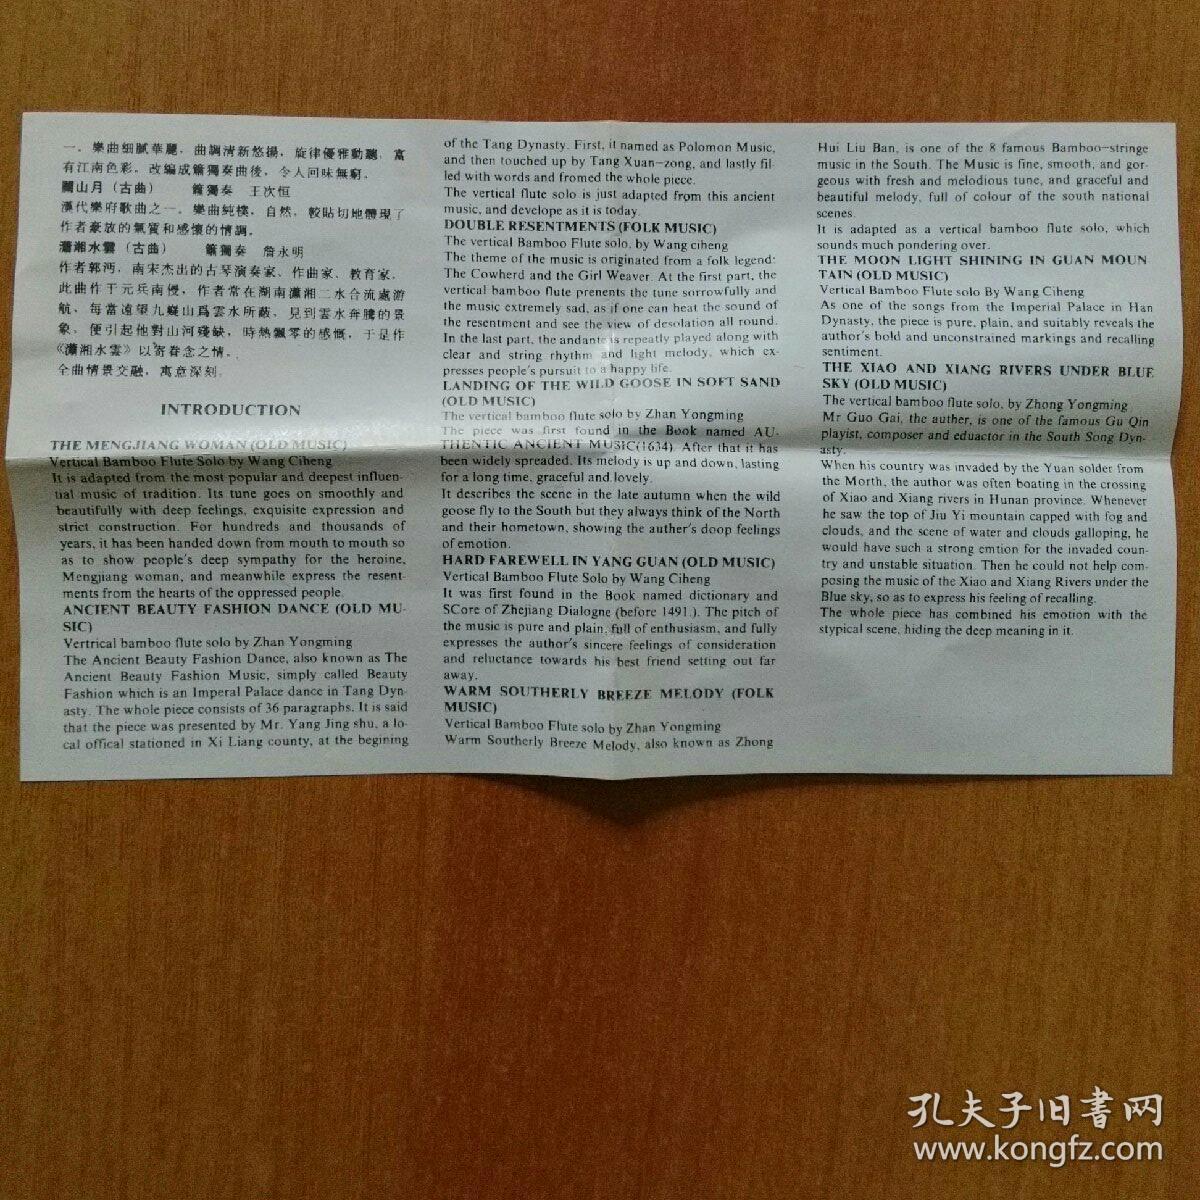 一。樂曲细腻華麗，曲調清新悠揚，旋律優雅動聽，富
有江南色彩。改編成簫獨奏曲後，令人回味無窮。
關山月（古曲） 簫獨奏 王次恒
漢代樂府歌曲之一。樂曲純樸，自然，較貼切地體現了
作者豪放的氣質和感懷的情調。
瀟湘水雲（古曲） 簫獨奏 詹永明
作者郭沔，南宋杰出的古琴演奏家、作曲家、教育家。
此曲作于元兵南侵，作者常在湖南瀟湘二水合流處游
航，每當遠望九嶷山爲雲水所蔽，見到雲水奔騰的景
象，便引起他對山河殘缺，時熱飄零的感慨，于是作
《瀟湘水雲》以寄眷念之情。
全曲情景交融，寓意深刻。
INTRODUCTION
THE MENGJIANG WOMAN (OLD MUSIC)
Vertical Bamboo Flute Solo by Wang Ciheng
It is adapted from the most popular and deepest influen-
tial music of tradition. Its tune goes on smoothly and
beautifully with deep feelings, exquisite expression and
strict construction. For hundreds and thousands of
years, it has been handed down from mouth to mouth so
as to show people's deep sympathy for the heroine,
Mengjiang woman, and meanwhile express the resent-
ments from the hearts of the oppressed people.
ANCIENT BEAUTY FASHION DANCE (OLD MU-
SIC)
Vertrical bamboo flute solo by Zhan Yongming
The Ancient Beauty Fashion Dance, also known as The
Ancient Beauty Fashion Music, simply called Beauty
Fashion which is an Imperal Palace dance in Tang Dyn-
asty. The whole piece consists of 36 paragraphs. It is said
that the piece was presented by Mr. Yang Jing shu, a lo-
cal offical stationed in Xi Liang county, at the begining
of the Tang Dynasty. First, it named as Polomon Music,
and then touched up by Tang Xuan-zong, and lastly fil-
led with words and fromed the whole piece.
The vertical flute solo is just adapted from this ancient
music, and develope as it is today.
DOUBLE RESENTMENTS (FOLK MUSIC)
The vertical Bamboo Flute solo, by Wang ciheng
The theme of the music is originated from a folk legend:
The Cowherd and the Girl Weaver. At the first part, the
vertical bamboo flute prenents the tune sorrowfully and
the music extremely sad, as if one can heat the sound of
the resentment and see the view of desolation all round.
In the last part, the andante is repeatly played along with
clear and string rhythm and light melody, which ex-
presses people's pursuit to a happy life.
LANDING OF THE WILD GOOSE IN SOFT SAND
(OLD MUSIC)
The vertical bamboo flute solo by Zhan Yongming
The piece was first found in the Book named AU-
THENTIC ANCIENT MUSIC(1634). After that it has
been widely spreaded. Its melody is up and down, lasting
for a long time, graceful and lovely.
It describes the scene in the late autumn when the wild
goose fly to the South but they always think of the North
and their hometown, showing the auther's doop feelings
of emotion.
HARD FAREWELL IN YANG GUAN (OLD MUSIC)
Vertical Bamboo Flute Solo by Wang Ciheng
It was first found in the Book named dictionary and
SCore of Zhejiang Dialogne (before 1491.). The pitch of
the music is pure and plain, full of enthusiasm, and fully
expresses the author's sincere feelings of consideration
and reluctance towards his best friend setting out far
away.
WARM SOUTHERLY BREEZE MELODY (FOLK
MUSIC)
Vertical Bamboo Flute solo by Zhan Yongming
Warm Southerly Breeze Melody, also known as Zhong
Hui Liu Ban, is one of the 8 famous Bamboo-stringe
music in the South. The Music is fine, smooth, and gor-
geous with fresh and melodious tune, and graceful and
beautiful melody, full of colour of the south national
scenes.
It is adapted as a vertical bamboo flute solo, which
sounds much pondering over.
THE MOON LIGHT SHINING IN GUAN MOUN
TAIN (OLD MUSIC)
Vertical Bamboo Flute solo By Wang Ciheng
As one of the songs from the Imperial Palace in Han
Dynasty, the piece is pure, plain, and suitably reveals the
author's bold and unconstrained markings and recalling
sentiment.
THE XIAO AND XIANG RIVERS UNDER BLUE
SKY (OLD MUSIC)
The vertical bamboo flute solo, by Zhong Yongming
Mr Guo Gai, the auther, is one of the famous Gu Qin
playist, composer and eduactor in the South Song Dyn-
asty.
When his country was invaded by the Yuan solder from
the Morth, the author was often boating in the crossing
of Xiao and Xiang rivers in Hunan province. Whenever
he saw the top of Jiu Yi mountain capped with fog and
clouds, and the scene of water and clouds galloping, he
would have such a strong emtion for the invaded coun-
try and unstable situation. Then he could not help com-
posing the music of the Xiao and Xiang Rivers under the
Blue sky, so as to express his feeling of recalling.
The whole piece has combined his emotion with the
stypical scene, hiding the deep meaning in it.
孔夫子旧書网
www.kongfz.com